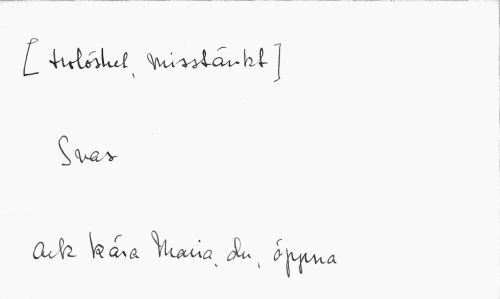 [trolöshet, misstänkt]
Svar
Ack kära Maria, du, öppna